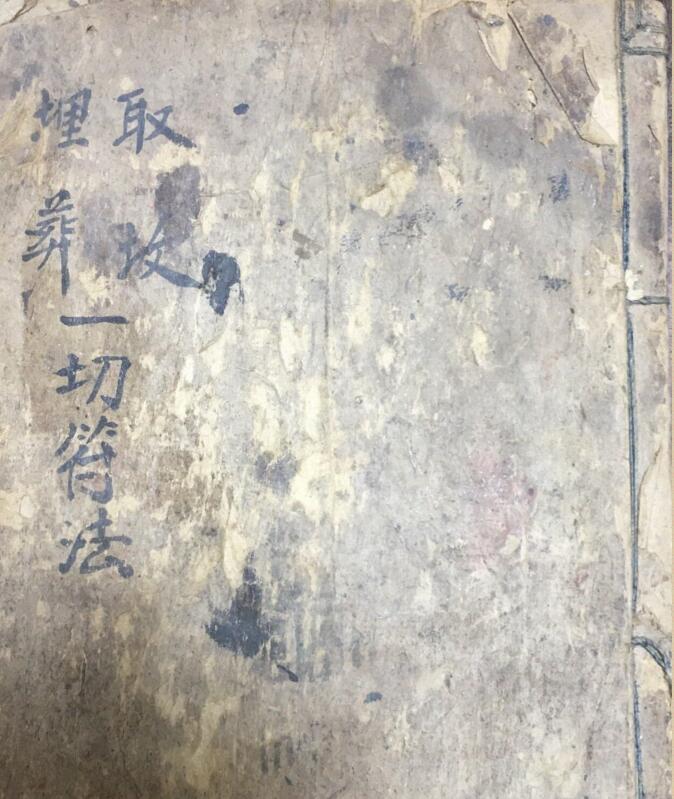 取坟
埋葬
一切符法